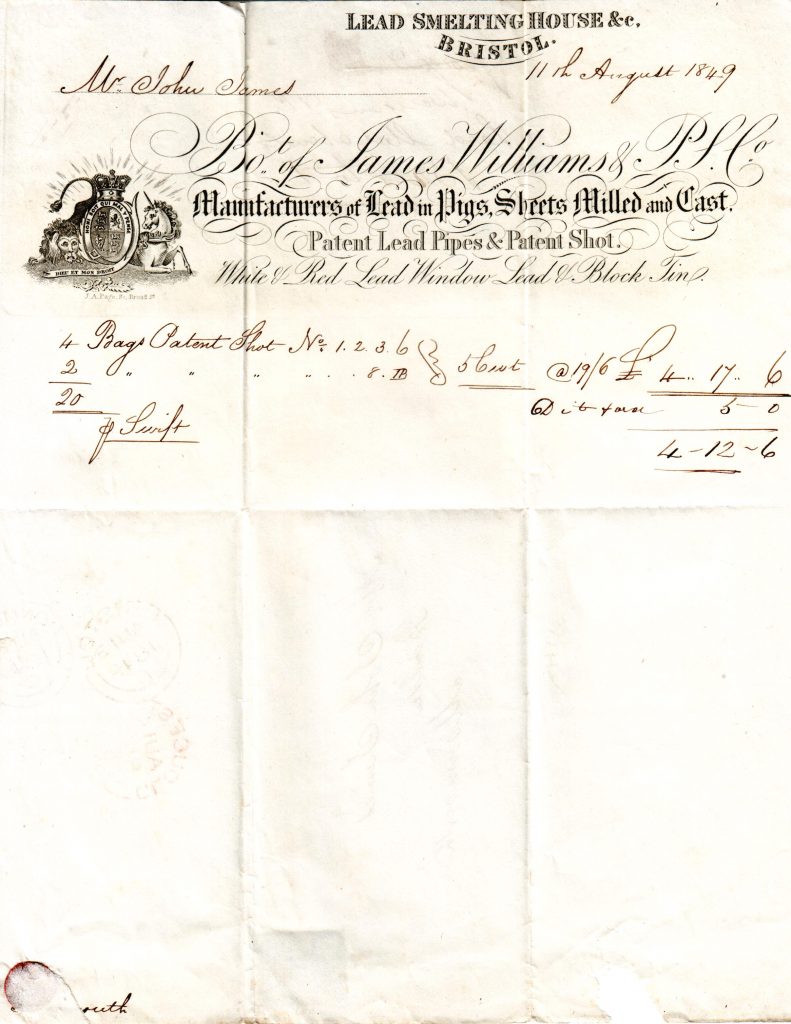 LEAD SMELTING HOUSE &c.
BRISTOL.
11th August 1849
Mr. John James
Bot. of James Williams & P.S. Co
Manufacturers of Lead in Pigs, Sheets Milled and Cast.
Patent Lead Pipes & Patent Shot.
White & Red Lead Window Lead & Block Tin.
HONI SOIT QUI MAL Y PENSE
DIEU ET MON DROIT
4 Bags Patent Shot Nos. 1. 2. 3. 6 } 5 Cwt @ 19/6 £ 4 .. 17 .. 6
2 " " " " . . 8. BB
20
5 - 0
p Swift
4 - 12 - 6
outh